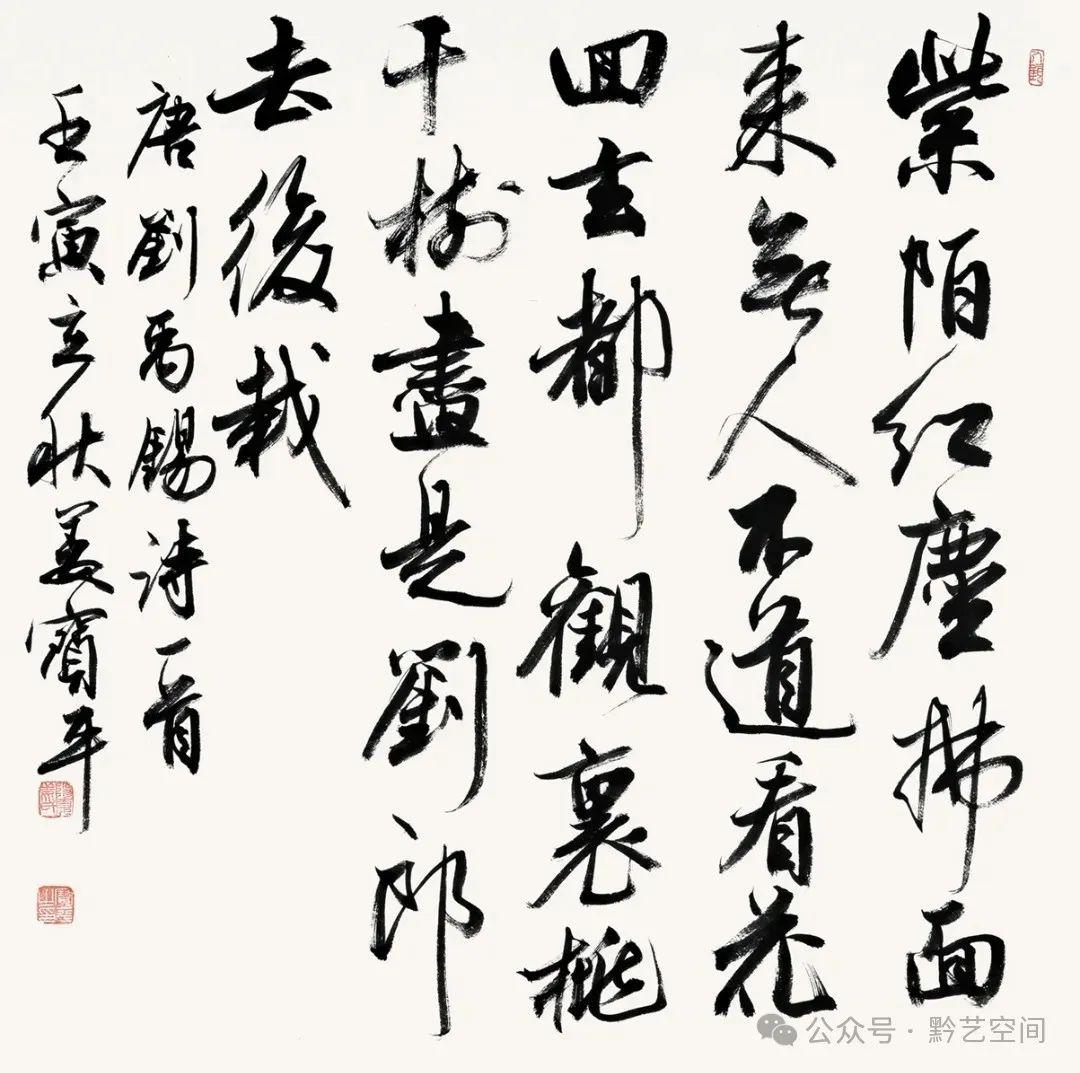 紫陌红塵拂面
来無人不道看花
回玄都觀裏桃
千樹盡是劉郎
去後栽
唐劉禹錫詩一首
壬寅立秋姜賓平
公众号 · 黔艺空间